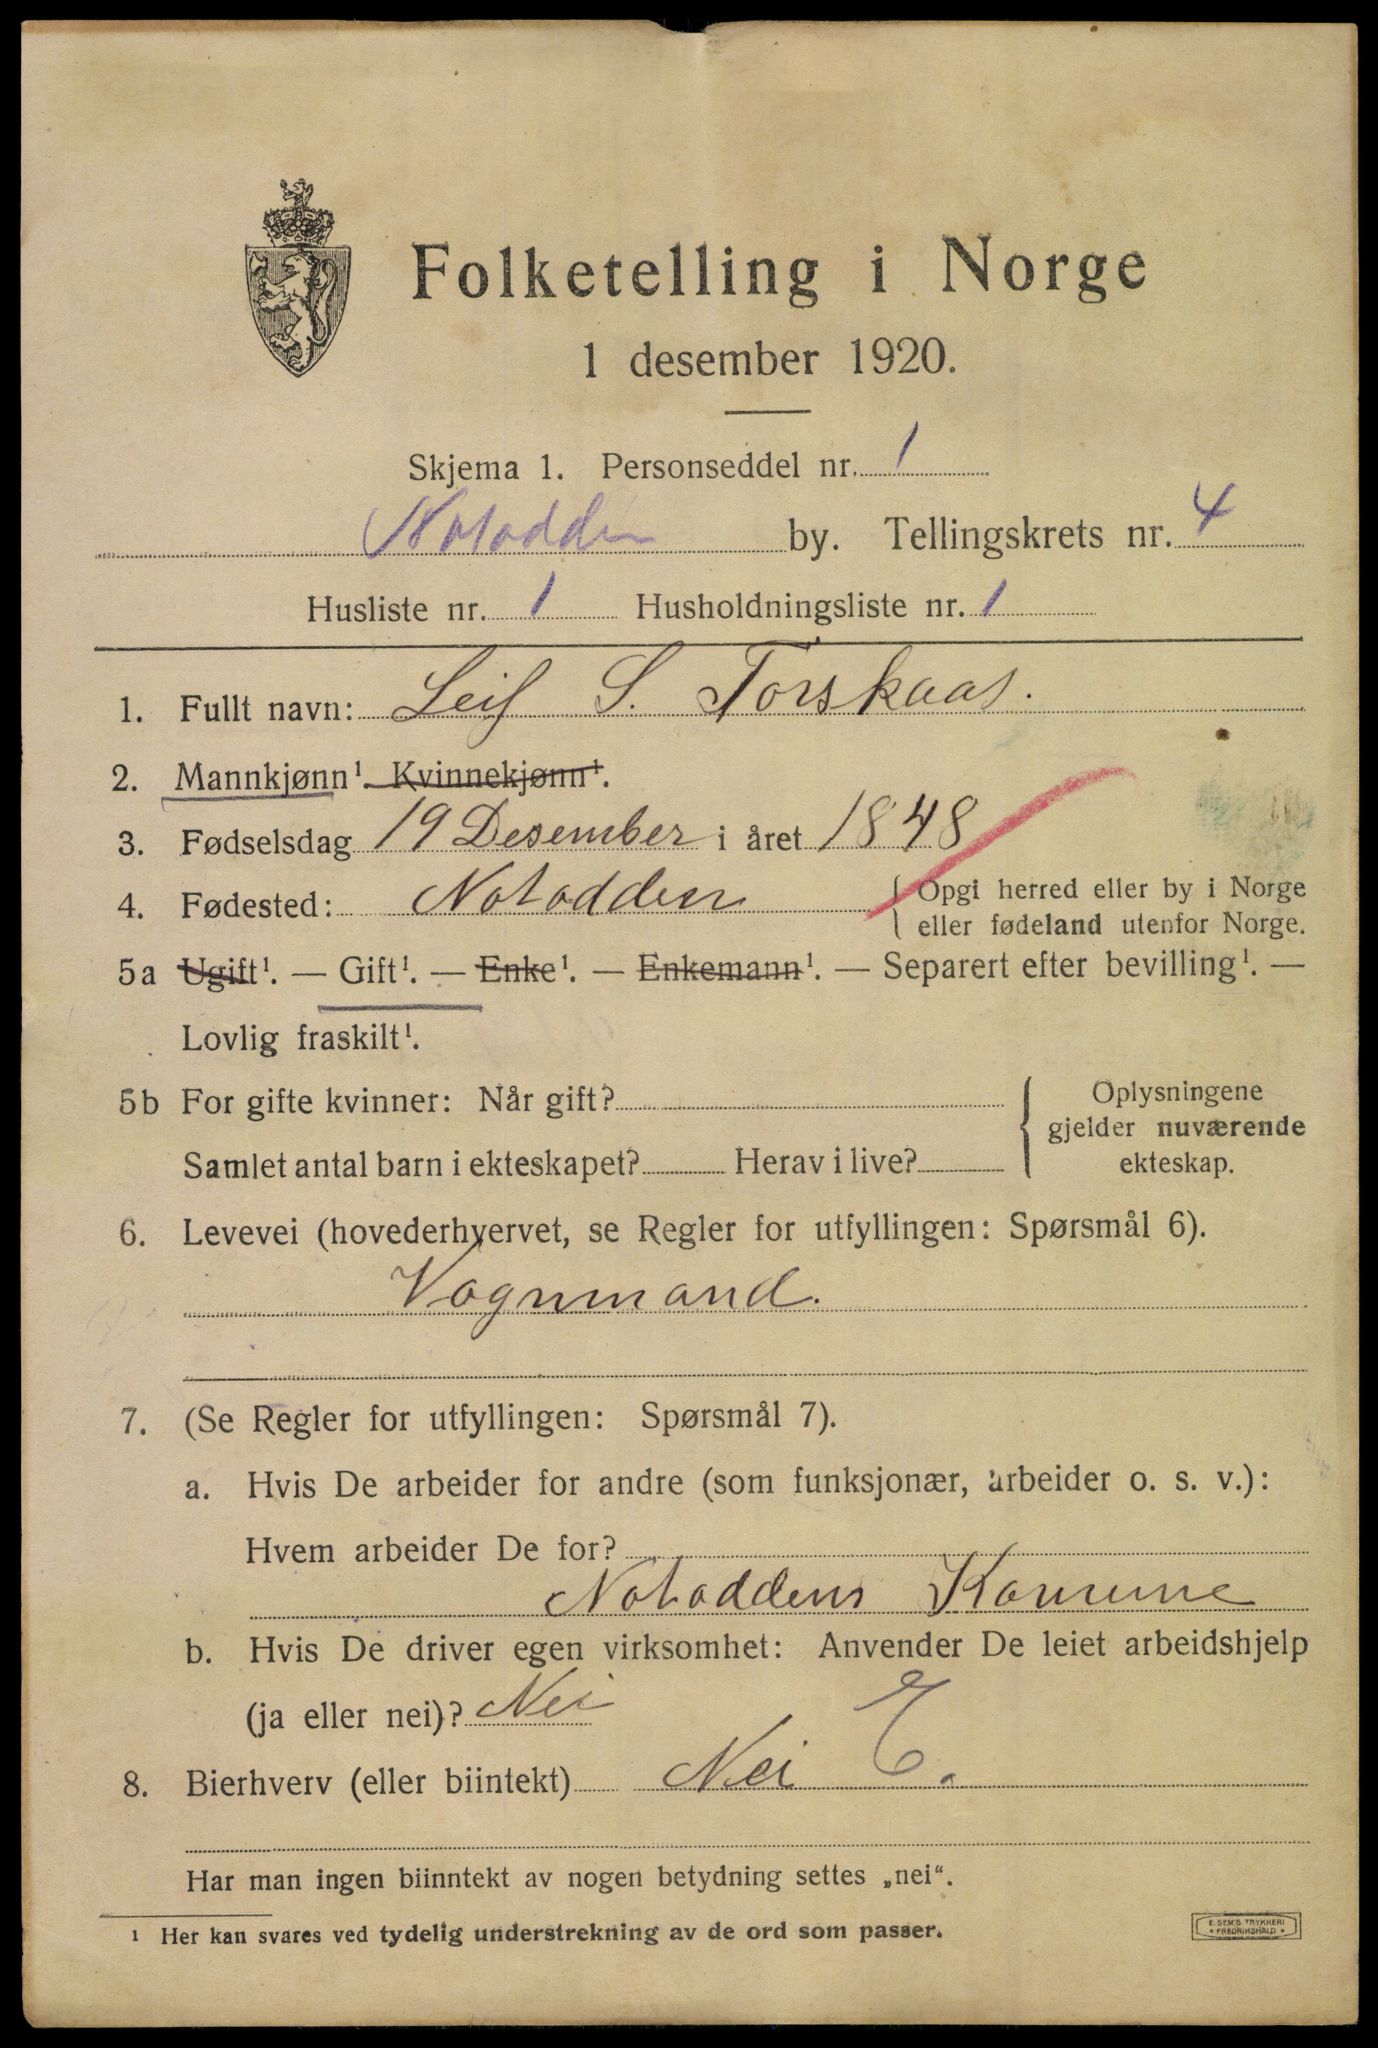 Folketelling i Norge
1 desember 1920.
Skjema 1. Personseddel nr. 1
Notodden by. Tellingskrets nr. 4
Husliste nr. 1 Husholdningsliste nr. 1
1. Fullt navn: Leif S. Torskaas.
2. Mannkjønn¹. Kvinnekjønn¹.
3. Fødselsdag 19 Desember i året 1848
4. Fødested: Notodden { Opgi herred eller by i Norge
eller fødeland utenfor Norge.
5a Ugift¹. — Gift¹. — Enke¹. — Enkemann¹. — Separert efter bevilling¹. —
Lovlig fraskilt¹.
5b For gifte kvinner: Når gift?
Samlet antal barn i ekteskapet? Herav i live?
Oplysningene
gjelder nuværende
ekteskap.
6. Levevei (hovederhvervet, se Regler for utfyllingen: Spørsmål 6).
Vognmand.
7. (Se Regler for utfyllingen: Spørsmål 7).
a. Hvis De arbeider for andre (som funksjonær, arbeider o. s. v.):
Hvem arbeider De for?
Notoddens Komune
b. Hvis De driver egen virksomhet: Anvender De leiet arbeidshjelp
(ja eller nei)? Nei
8. Bierhverv (eller biintekt) Nei E.
Har man ingen biinntekt av nogen betydning settes „nei“.
¹ Her kan svares ved tydelig understrekning av de ord som passer.
E. SEM'S TRYKKERI
• FREDRIKSHALD •